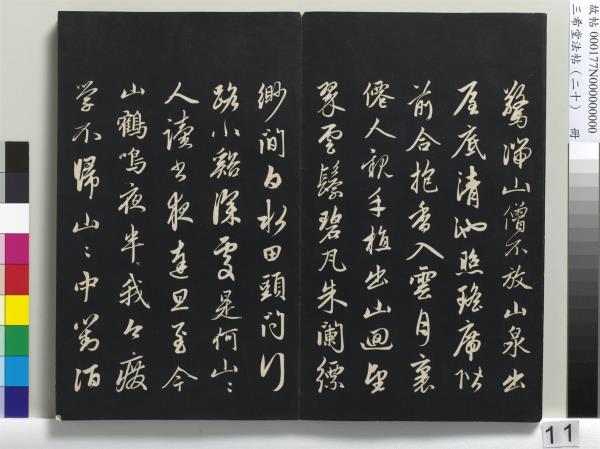 故帖 000177N000000000
三希堂法帖（二十） 冊
驚湍山僧不放山泉出
屋底清池照瑤席階
前合抱香入雲月裏
僊人親手植出山迴望
翠雲鬟碧瓦朱闌縹
緲間白水田頭問行
路小谿深處是何山〻
人讀書夜達旦至今
山鶴鳴夜半我今廢
学不歸山〻中對酒
11